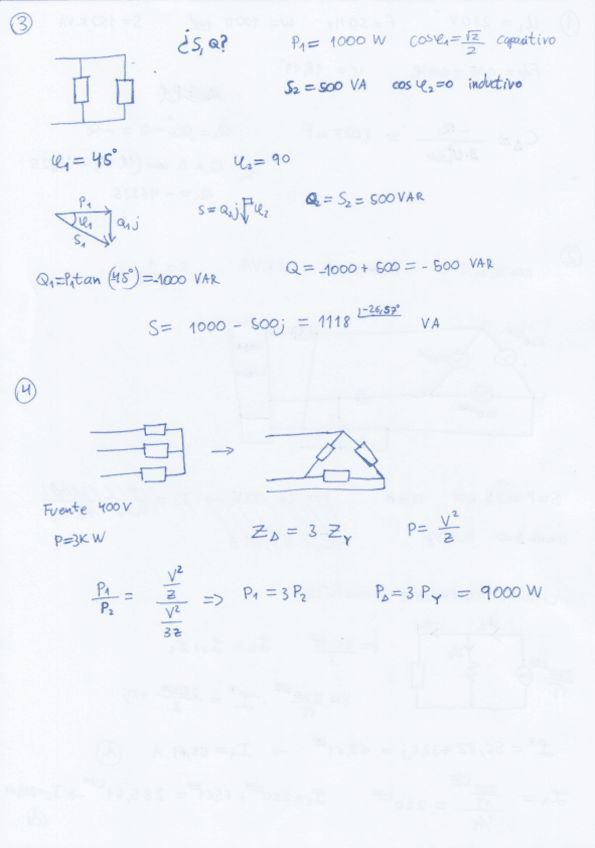 ③
¿S, Q?
P₁ = 1000 W cosφ₁ = √2/2 capacitivo
S₂ = 500 VA cos φ₂ = 0 inductivo
φ₁ = 45° φ₂ = 90
P₁
φ₁ Q₁j
S₁
S = Q₂j φ₂
Q₂ = S₂ = 500 VAR
Q₁ = P₁ tan (45°) = -1000 VAR
Q = -1000 + 500 = -500 VAR
S = 1000 - 500j = 1118 |-26,57° VA
④
→
Fuente 400 V
P = 3K W
Z_Δ = 3 Z_Y P = V²/Z
P₁/P₂ = (V²/Z)/(V²/3Z) => P₁ = 3P₂ P_Δ = 3 P_Y = 9000 W